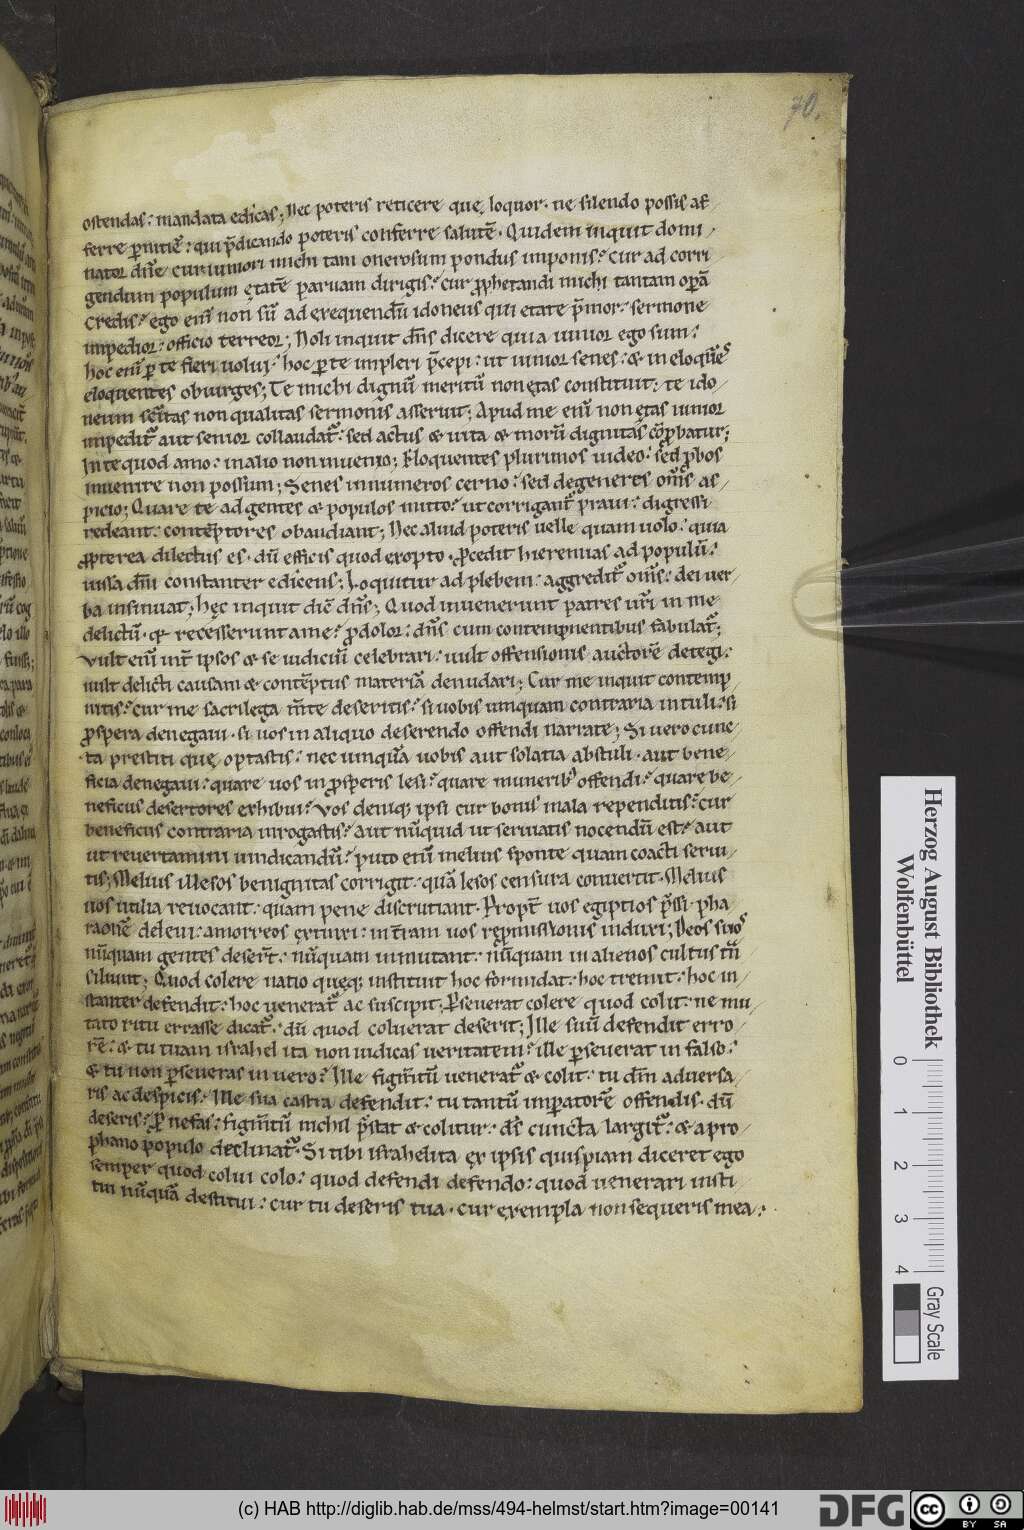 70.
ostendas: mandata edicas; Nec poteris reticere quę loquor· ne silendo possis af/
ferre ꝑnitiē: qui p̄dicando poteris conferre salutē· Quidem inquit domi/
nator dn̄e cur iuniori michi tam onerosum pondus imponis? Cur ad corri/
gendum populum ętatē paruam dirigis? Cur ꝓphetandi michi tantam oꝑā
credis? ego eni͞ non su͞ ad exequendu͞ idoneus qui etate p̄mor· sermone
impedior: officio terreor; Noli inquit dn̄s dicere quia iunior ego sum:
hoc eni͞ ꝑ te fieri uolui· hoc ꝑ te impleri p̄cepi: ut iunior senes: & in eloque͞s
eloquentes obiurges; Te michi dignu͞ meritu͞ non ętas constituit: te ido/
neum sc̄itas non qualitas sermonis asseruit; Apud me eni͞ non ętas iunior
impedit᷑ aut senior collaudat᷑: sed actus & uita & moru͞ dignitas cōꝓbatur;
In te quod amo: in alio non inuenio; Eloquentes plurimos uideo: sed ꝓbos
inuenire non possum; Senes innumeros cerno: sed degeneres om̄s as/
picio; Quare te ad gentes & populos mitto: ut corrigant᷑ praui: digressi
redeant: contēptores obaudiant; Nec aliud poteris uelle quam uolo: quia
ꝓpterea dilectus es· du͞ efficis quod exopto· ꝓcedit hieremias ad populu͞:
iussa dn̄i constanter edicens; Loquitur ad plebem: aggredit᷑ om̄s: dei uer/
ba insinuat; hęc inquit diē dn̄s; Quod inuenerunt patres ur̄i in me
delictu͞· q̄ recesserunt a me? ꝓdolor: dn̄s cum contempnentibus fabulat᷑;
Vult eni͞ int̄ ipsos & se iudiciu͞ celebrari: uult offensionis auctorē detegi:
uult delicti causam & contēptus materiā denudari; Cur me inquit contemp
nitis? cur me sacrilega m̄te deseritis? si uobis umquam contraria intuli: si
ꝓspera denegaui· si uos in aliquo deserendo offendi narrate; Si uero cunc
ta prestiti quę optastis: nec umquā uobis aut solatia abstuli· aut bene/
ficia denegaui: quare uos in ꝓsperis lesi? quare munerib᷒ offendi? quare be/
neficus desertores exhibui? Vos deniq; ipsi cur bonis mala rependitis? cur
beneficus contraria inrogastis? aut nu͞quid ut seruiatis nocendu͞ est? aut
ut reuertamini uindicandu͞? puto eni͞ melius sponte quam coacti serui/
tis; Melius illesos benignitas corrigit: quā lesos censura conuertit· Melius
uos utilia reuocant: quam pene discrutiant· Propt̄ uos egiptios p̄ssi· pha
raonē deleui: amorreos extinxi: in t̄ram uos repromissionis induxi; Deos suos
nu͞quam gentes deser̄t: nu͞quam inmutant: nu͞quam in alienos cultus tn̄
siliunt; Quod colere natio quęq; instituit hoc formidat: hoc tremit: hoc in/
stanter defendit: hoc uenerat᷑ ac suscipit; Perseuerat colere quod colit: ne mu/
tato ritu errasse dicat᷑: du͞ quod coluerat deserit; Ille suu͞ defendit erro/
rē: & tu tuam israhel ita non iudicas ueritatem? ille ꝑseuerat in falso?
& tu non ꝑseueras in uero? Ille figm̄tu͞ uenerat᷑ & colit: tu dn̄m aduersa/
ris ac despicis: Ille sua castra defendit: tu tantu͞ imꝑatorē offendis· du͞
deseris? Pro nefas: figm̄tu͞ nichil p̄stat & colitur: ds̄ cuncta largit᷑: & a pro/
phano populo declinat᷑· Si tibi israhelita ex ipsis quispiam diceret ego
semper quod colui colo: quod defendi defendo: quod uenerari insti/
tui nu͞quā destitui: cur tu deseris tua· cur exempla non sequeris mea?
Herzog August Bibliothek
Wolfenbüttel
0 1 2 3 4
Gray Scale
(c) HAB http://diglib.hab.de/mss/494-helmst/start.htm?image=00141
DFG
cc BY SA